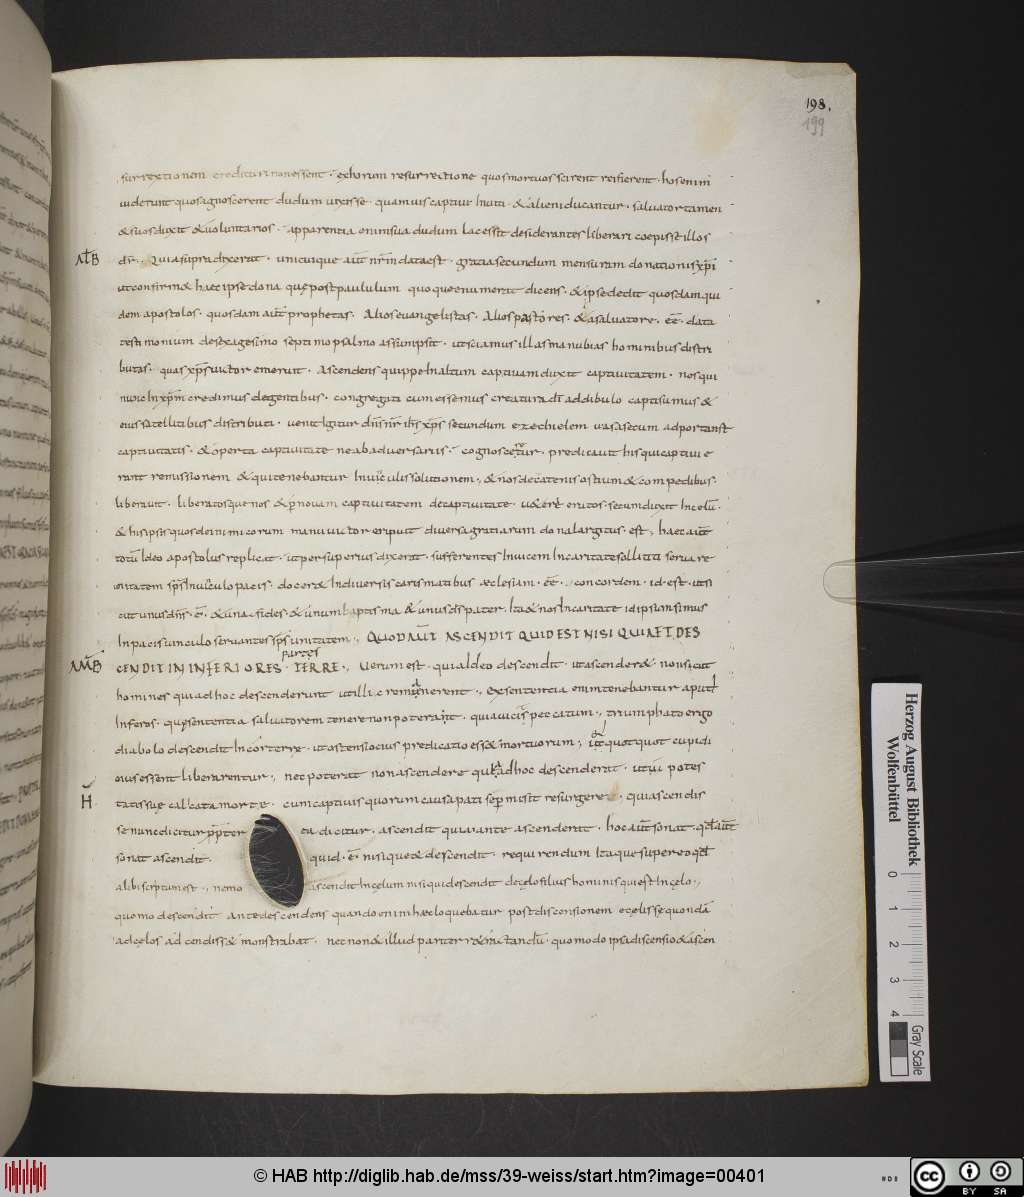 198.
199
surrectionem credituri non essent · ex horum resurrectione quos mortuos scirent reuiserent · hos enim
uiderunt quos agnoscerent dudum uixisse · quamuis captiui inuiti · & alieni ducantur · saluator tamen
& suos duxit & uoluntarios · apparentia enim sua dudum lacessit desiderantes liberari coepisse illos
Quia supra dixerat · unicuique aūt nr̄m data est · gratia secundum mensuram donationis xp̄i
ut confirm& haec ipse dona quę post paululum quoque enumerat dicens · & ipse dedit quosdam qui
dem apostolos · quosdam aūt prophetas · Alios euangelistas · Alios pastores · & a saluatore · ēē · data
testimonium de sexagesimo septimo psalmo assumpsit · ut sciamus illas manubias hominibus distri
butas · quas xp̄s uictor emeruit · Ascendens quippe in altum captiuam duxit captiuitatem · nos qui
nunc in xp̄m credimus de gentibus · congregati cum essemus creatura dī a diabulo capti sumus &
eius satellitibus distributi · uenit igitur dn̄s nr̄ ih̄s xp̄s secundum ezechielem uasa secum adportans
captiuitatis · & operta captiuitate ne ab aduersariis · cognosceretur · predicauit his qui captiui e
rant remissionem & qui tenebantur in uinculis solutionem · & nos de catenis ostium & compedibus ·
liberauit · liberatosque nos & p nouam captiuitatem de captiuitate · erutos · secum duxit in cęlū ·
& his ipsis quos de inimicorum manu uictor eripuit diuersa gratiarum dona largitus · est · haec aūt
totū ideo apostolus replicat · ut per superius dixerat · sufferentes inuicem in caritate solliciti seruare
unitatem sp̄s in uinculo pacis · docer& in diuersis carismatibus ęclesiam · ēē · concordem · id · est · ut si
cut unus dn̄s · ē · & una fides & unum baptisma & unus d̄s pater · Ita & nos in caritate id ipsum simus
In pacis uinculo seruantes sp̄s unitatem · QUOD AUT ASCENDIT QUID EST NISI QUIA ET DES
partes
AMB CENDIT IN INFERIORES · TERRE · Uerum est · quia ideo descendit · ut ascender& · non sicut
homines qui ad hoc descenderunt ut illic remanerent · ex sententia enim tenebantur aput
Inferos · quę sententia saluatorem tenere non poterat · quia uicit peccatum · triumphato ergo
diabolo descendit in cor terre · ut ostensio eius predicatio ess& mortuorum · quotquot cupidi
eius essent liberarentur · nec poterat non ascendere quia ad hoc descenderat · ut ui potes
H tatis suę calcata morte · cum captiuis quorum causa pati semper misit resurgere · quia scendis
se nunc dicitur propter ea dicitur · ascendit quia ante ascenderat · hoc aūt sonat · qd̄ aūt
sonat ascendit · quid · ē · nisi que & descendit · requirendum itaque super eo qd̄
alibi scriptum est · nemo ascendit in cęlum nisi qui descendit de cęlo filius hominis qui est in cęlo ·
quomodo descendit ante descendens quando enim haec loquebatur post discensionem e cęlis sequondā
ad cęlos ascendiss& monstrabat · nec non & illud pariter quomodo ipsa discensio & ascen
Herzog August Bibliothek
Wolfenbüttel
0 1 2 3 4
Gray Scale
© HAB http://diglib.hab.de/mss/39-weiss/start.htm?image=00401
cc BY SA